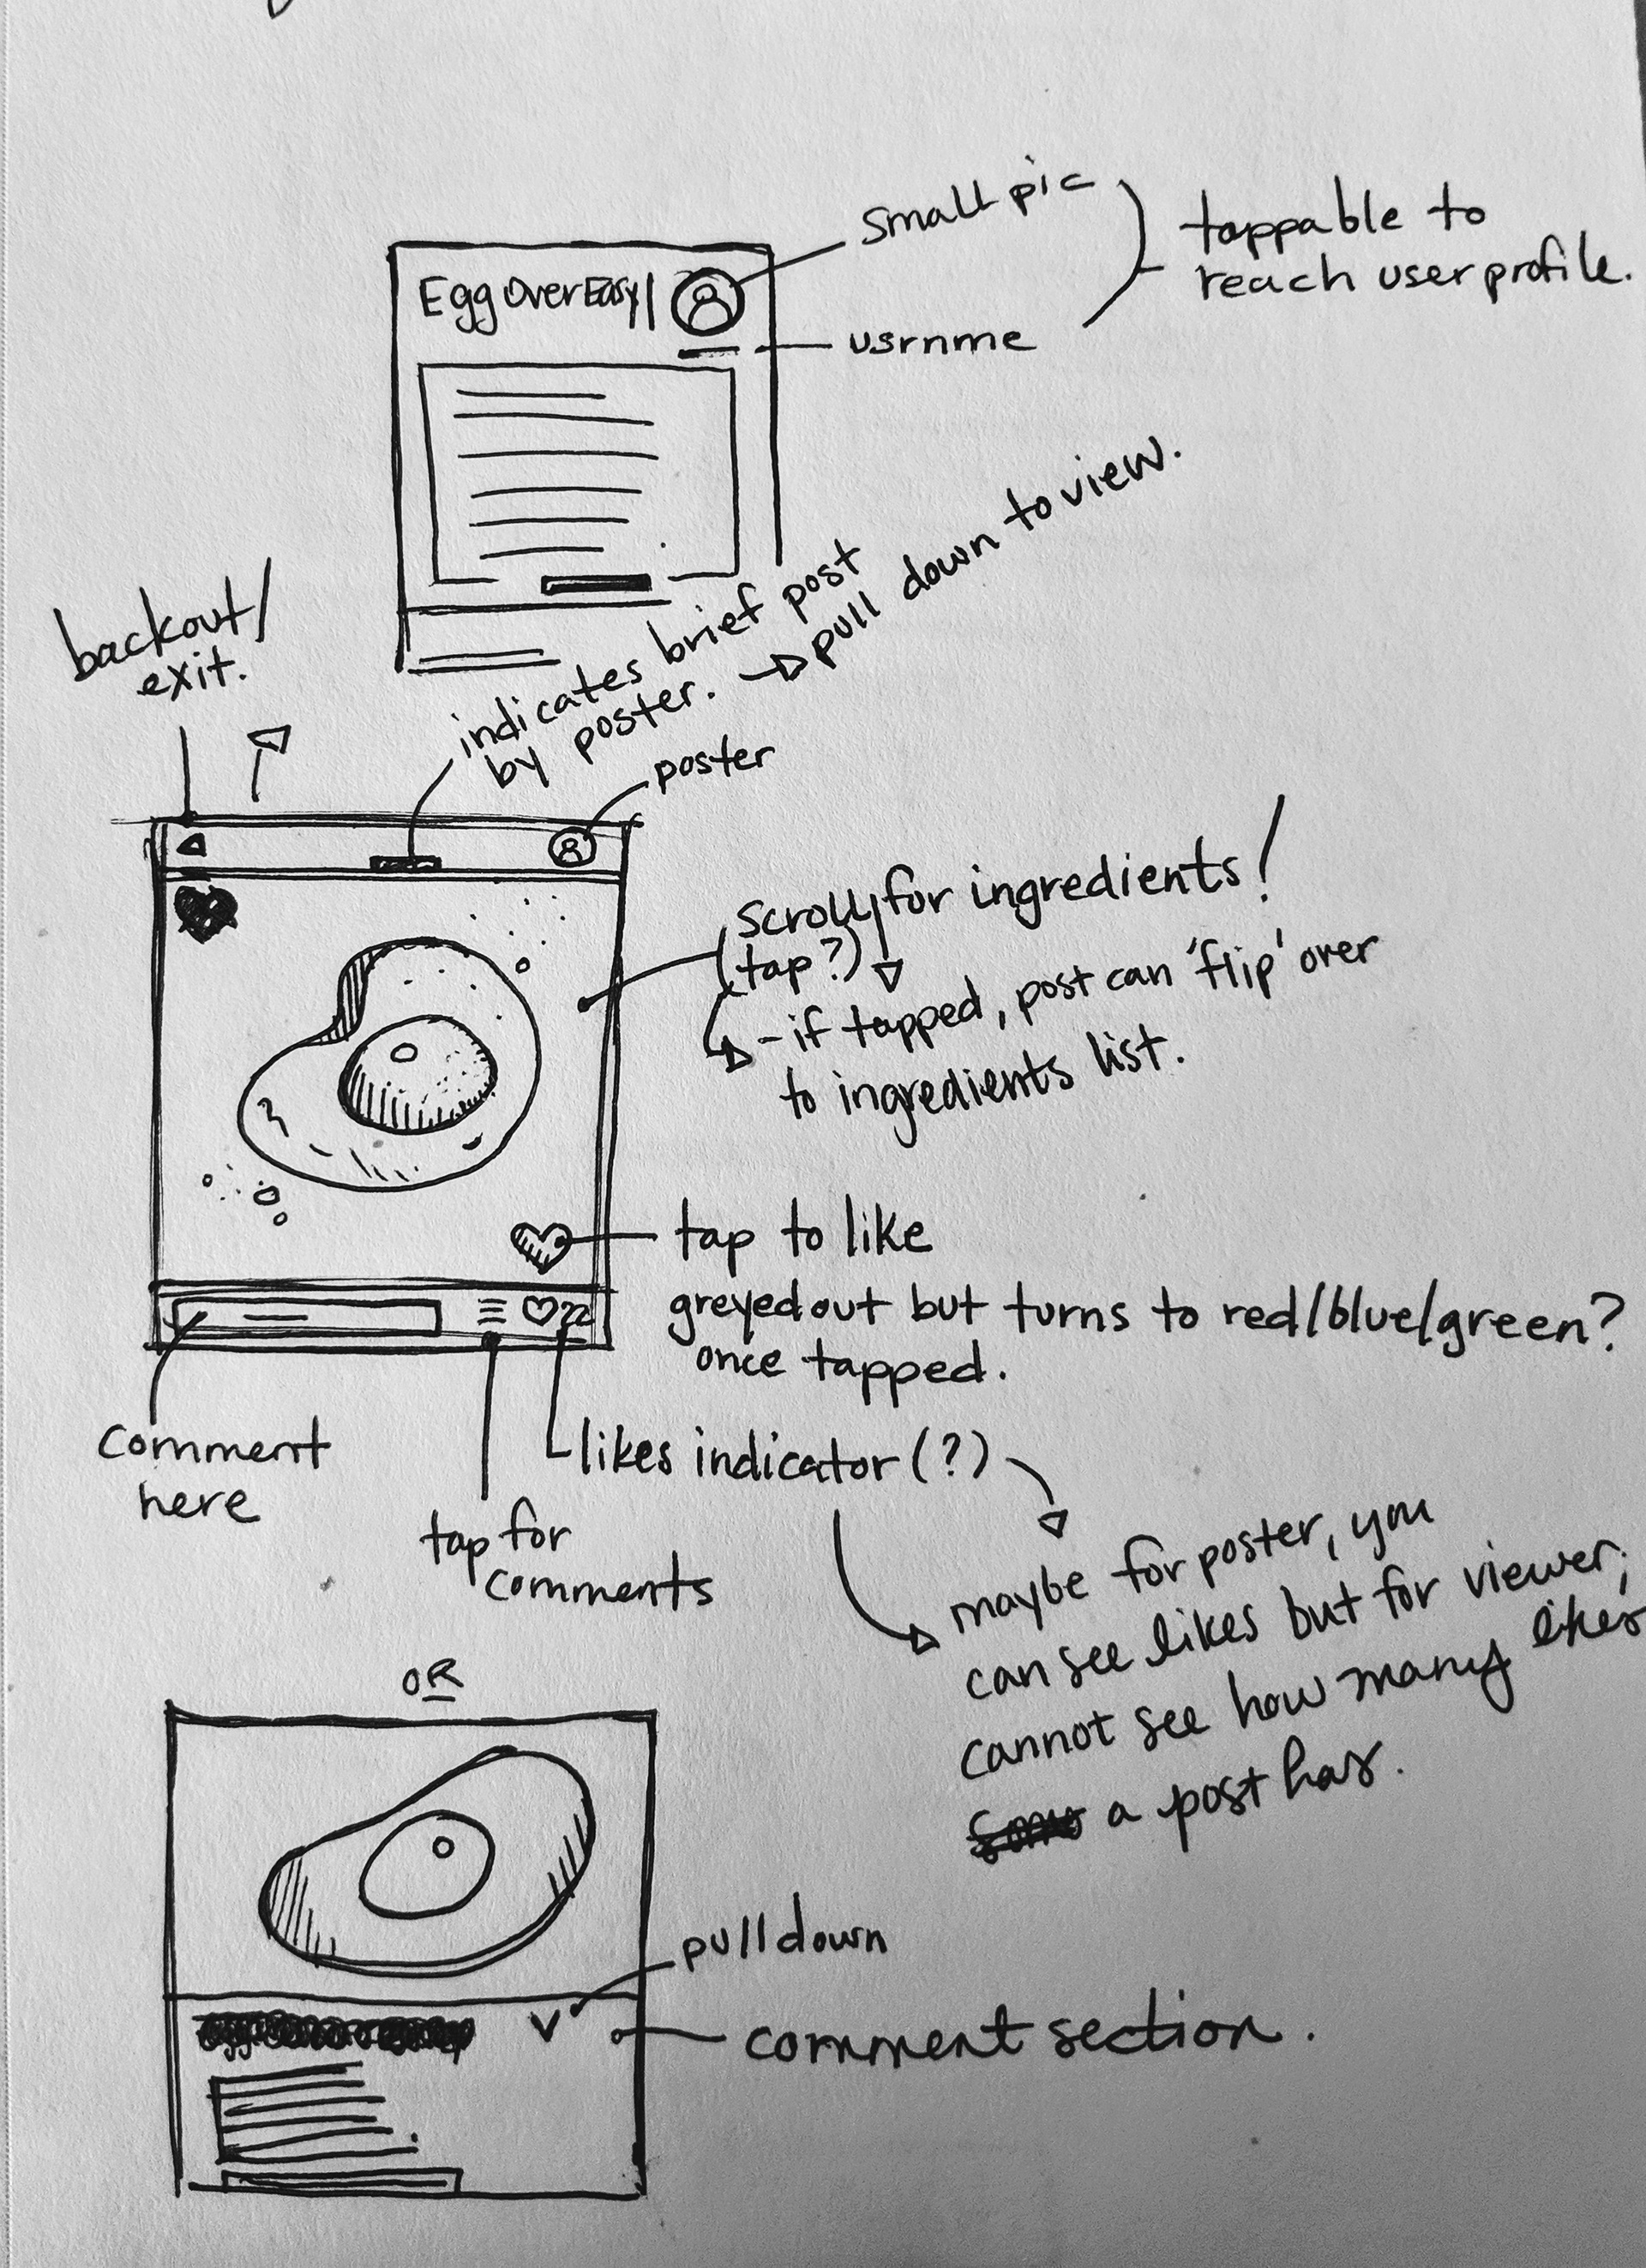 small pic
tappable to
reach user profile.
Egg Over Easy
usrnme
indicates brief post
by poster. → pull down to view.
backout/
exit.
poster
scroll for ingredients!
(tap?)
- if tapped, post can 'flip' over
to ingredients list.
tap to like
greyed out but turns to red/blue/green?
once tapped.
22
comment
here
tap for
comments
likes indicator (?)
maybe for poster, you
can see likes but for viewer,
cannot see how many likes
a post has.
OR
pull down
comment section.